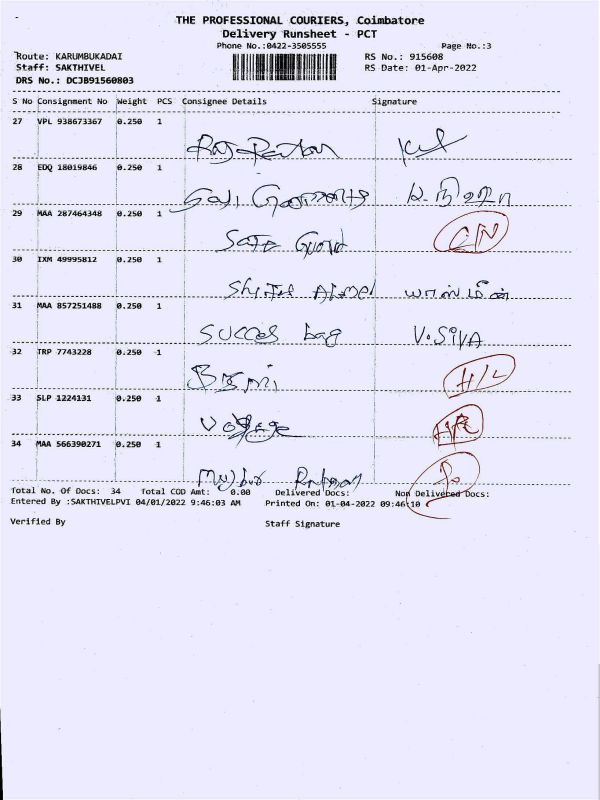 THE PROFESSIONAL COURIERS, Coimbatore
Delivery Runsheet - PCT
Phone No.:0422-3505555 Page No.:3
Route: KARUMBUKADAI RS No.: 915608
Staff: SAKTHIVEL RS Date: 01-Apr-2022
DRS No.: DCJB91560803
S No Consignment No Weight PCS Consignee Details Signature
27 VPL 938673367 0.250 1
28 EDQ 18019846 0.250 1
29 MAA 287464348 0.250 1
Safe Guard
30 IXM 49995812 0.250 1
Ahmed யாஸ்மின்
31 MAA 857251488 0.250 1
SUCCES bag V.SIVA
32 TRP 7743228 0.250 1
H/L
33 SLP 1224131 0.250 1
34 MAA 566390271 0.250 1
Mujbur Rahman
Total No. Of Docs: 34 Total COD Amt: 0.00 Delivered Docs: Non Delivered Docs:
Entered By :SAKTHIVELPVI 04/01/2022 9:46:03 AM Printed On: 01-04-2022 09:46:10
Verified By Staff Signature